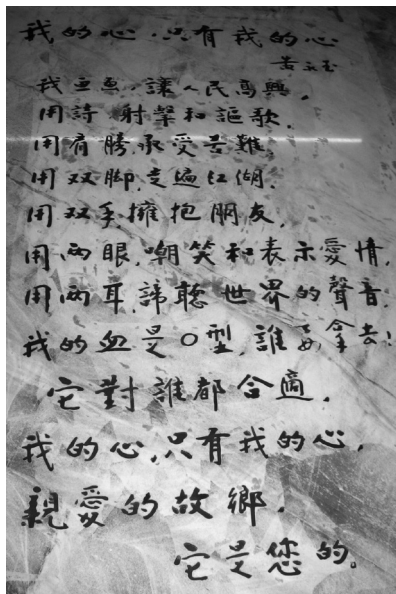 我的心，只有我的心
黃永玉
我画画，讓人民高興，
用詩，射擊和謳歌，
用肩膀，承受苦難，
用双脚，走遍江湖，
用双手，擁抱朋友，
用两眼，嘲笑和表示愛情，
用两耳，諦聽世界的聲音，
我的血是O型，誰要拿去！
它對誰都合適，
我的心，只有我的心，
親愛的故鄉，
它是您的。